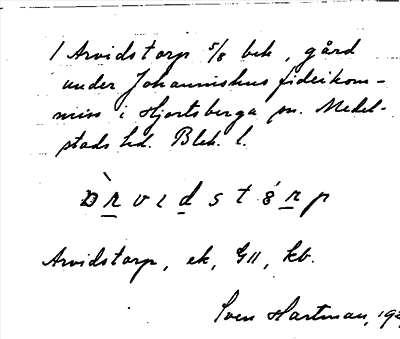 1 Arvidstorp 5/8 bek, gård
under Johannishus fideikom-
miss i Hjortsberga sn. Medel-
stads hd. Blek. l.
Arvidstorp, ek, GII, kb.
Sven Hartman, 192